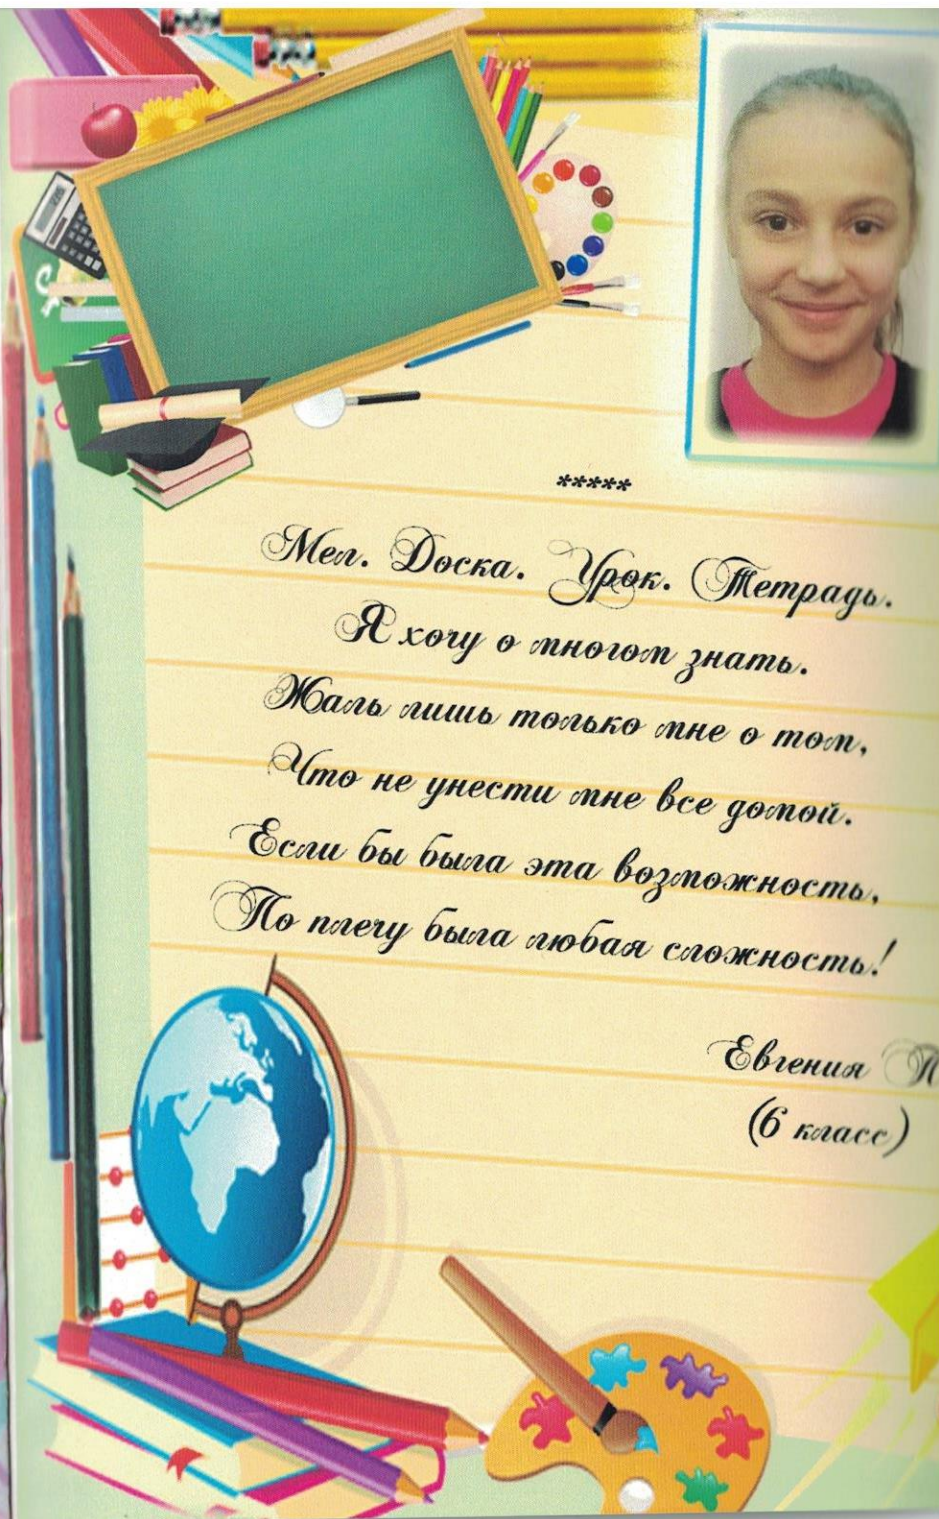 *****
Мел. Доска. Урок. Тетрадь.
Я хочу о многом знать.
Жаль лишь только мне о том,
Что не унести мне все домой.
Если бы была эта возможность,
По плечу была любая сложность!
Евгения П
(6 класс)